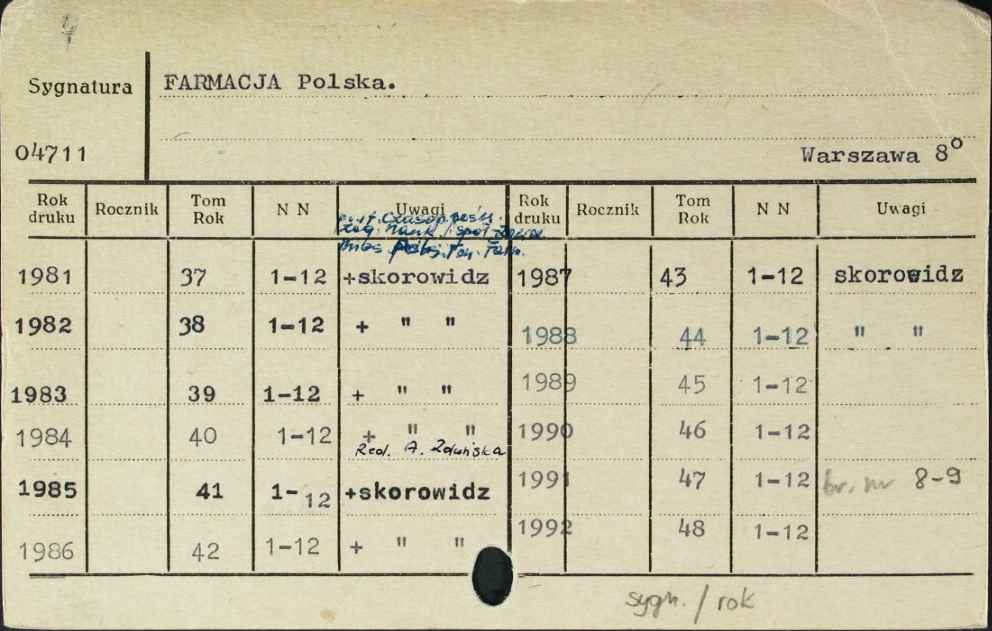 4
Sygnatura FARMACJA Polska.
04711 Warszawa 8°
Rok druku Rocznik Tom Rok N N Uwagi Rok druku Rocznik Tom Rok N N Uwagi
1981 37 1-12 +skorowidz 1987 43 1-12 skorowidz
1982 38 1-12 + " " 1988 44 1-12 " "
1983 39 1-12 + " " 1989 45 1-12
1984 40 1-12 + " " 1990 46 1-12
Red. A. Zduńska
1985 41 1-12 +skorowidz 1991 47 1-12 br. nr 8-9
1986 42 1-12 + " " 1992 48 1-12
sygn. / rok